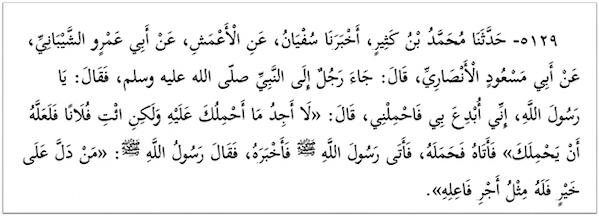 ٥١٢٩- حَدَّثَنَا مُحَمَّدُ بْنُ كَثِيرٍ، أَخْبَرَنَا سُفْيَانُ، عَنِ الْأَعْمَشِ، عَنْ أَبِي عَمْرٍو الشَّيْبَانِيِّ،
عَنْ أَبِي مَسْعُودٍ الْأَنْصَارِيِّ، قَالَ: جَاءَ رَجُلٌ إِلَى النَّبِيِّ صلّى الله عليه وسلم، فَقَالَ: يَا
رَسُولَ اللَّهِ، إِنِّي أُبْدِعَ بِي فَاحْمِلْنِي، قَالَ: «لَا أَجِدُ مَا أَحْمِلُكَ عَلَيْهِ وَلَكِنِ ائْتِ فُلَانًا فَلَعَلَّهُ
أَنْ يَحْمِلَكَ» فَأَتَاهُ فَحَمَلَهُ، فَأَتَى رَسُولَ اللَّهِ ﷺ فَأَخْبَرَهُ، فَقَالَ رَسُولُ اللَّهِ ﷺ: «مَنْ دَلَّ عَلَى
خَيْرٍ فَلَهُ مِثْلُ أَجْرِ فَاعِلِهِ».